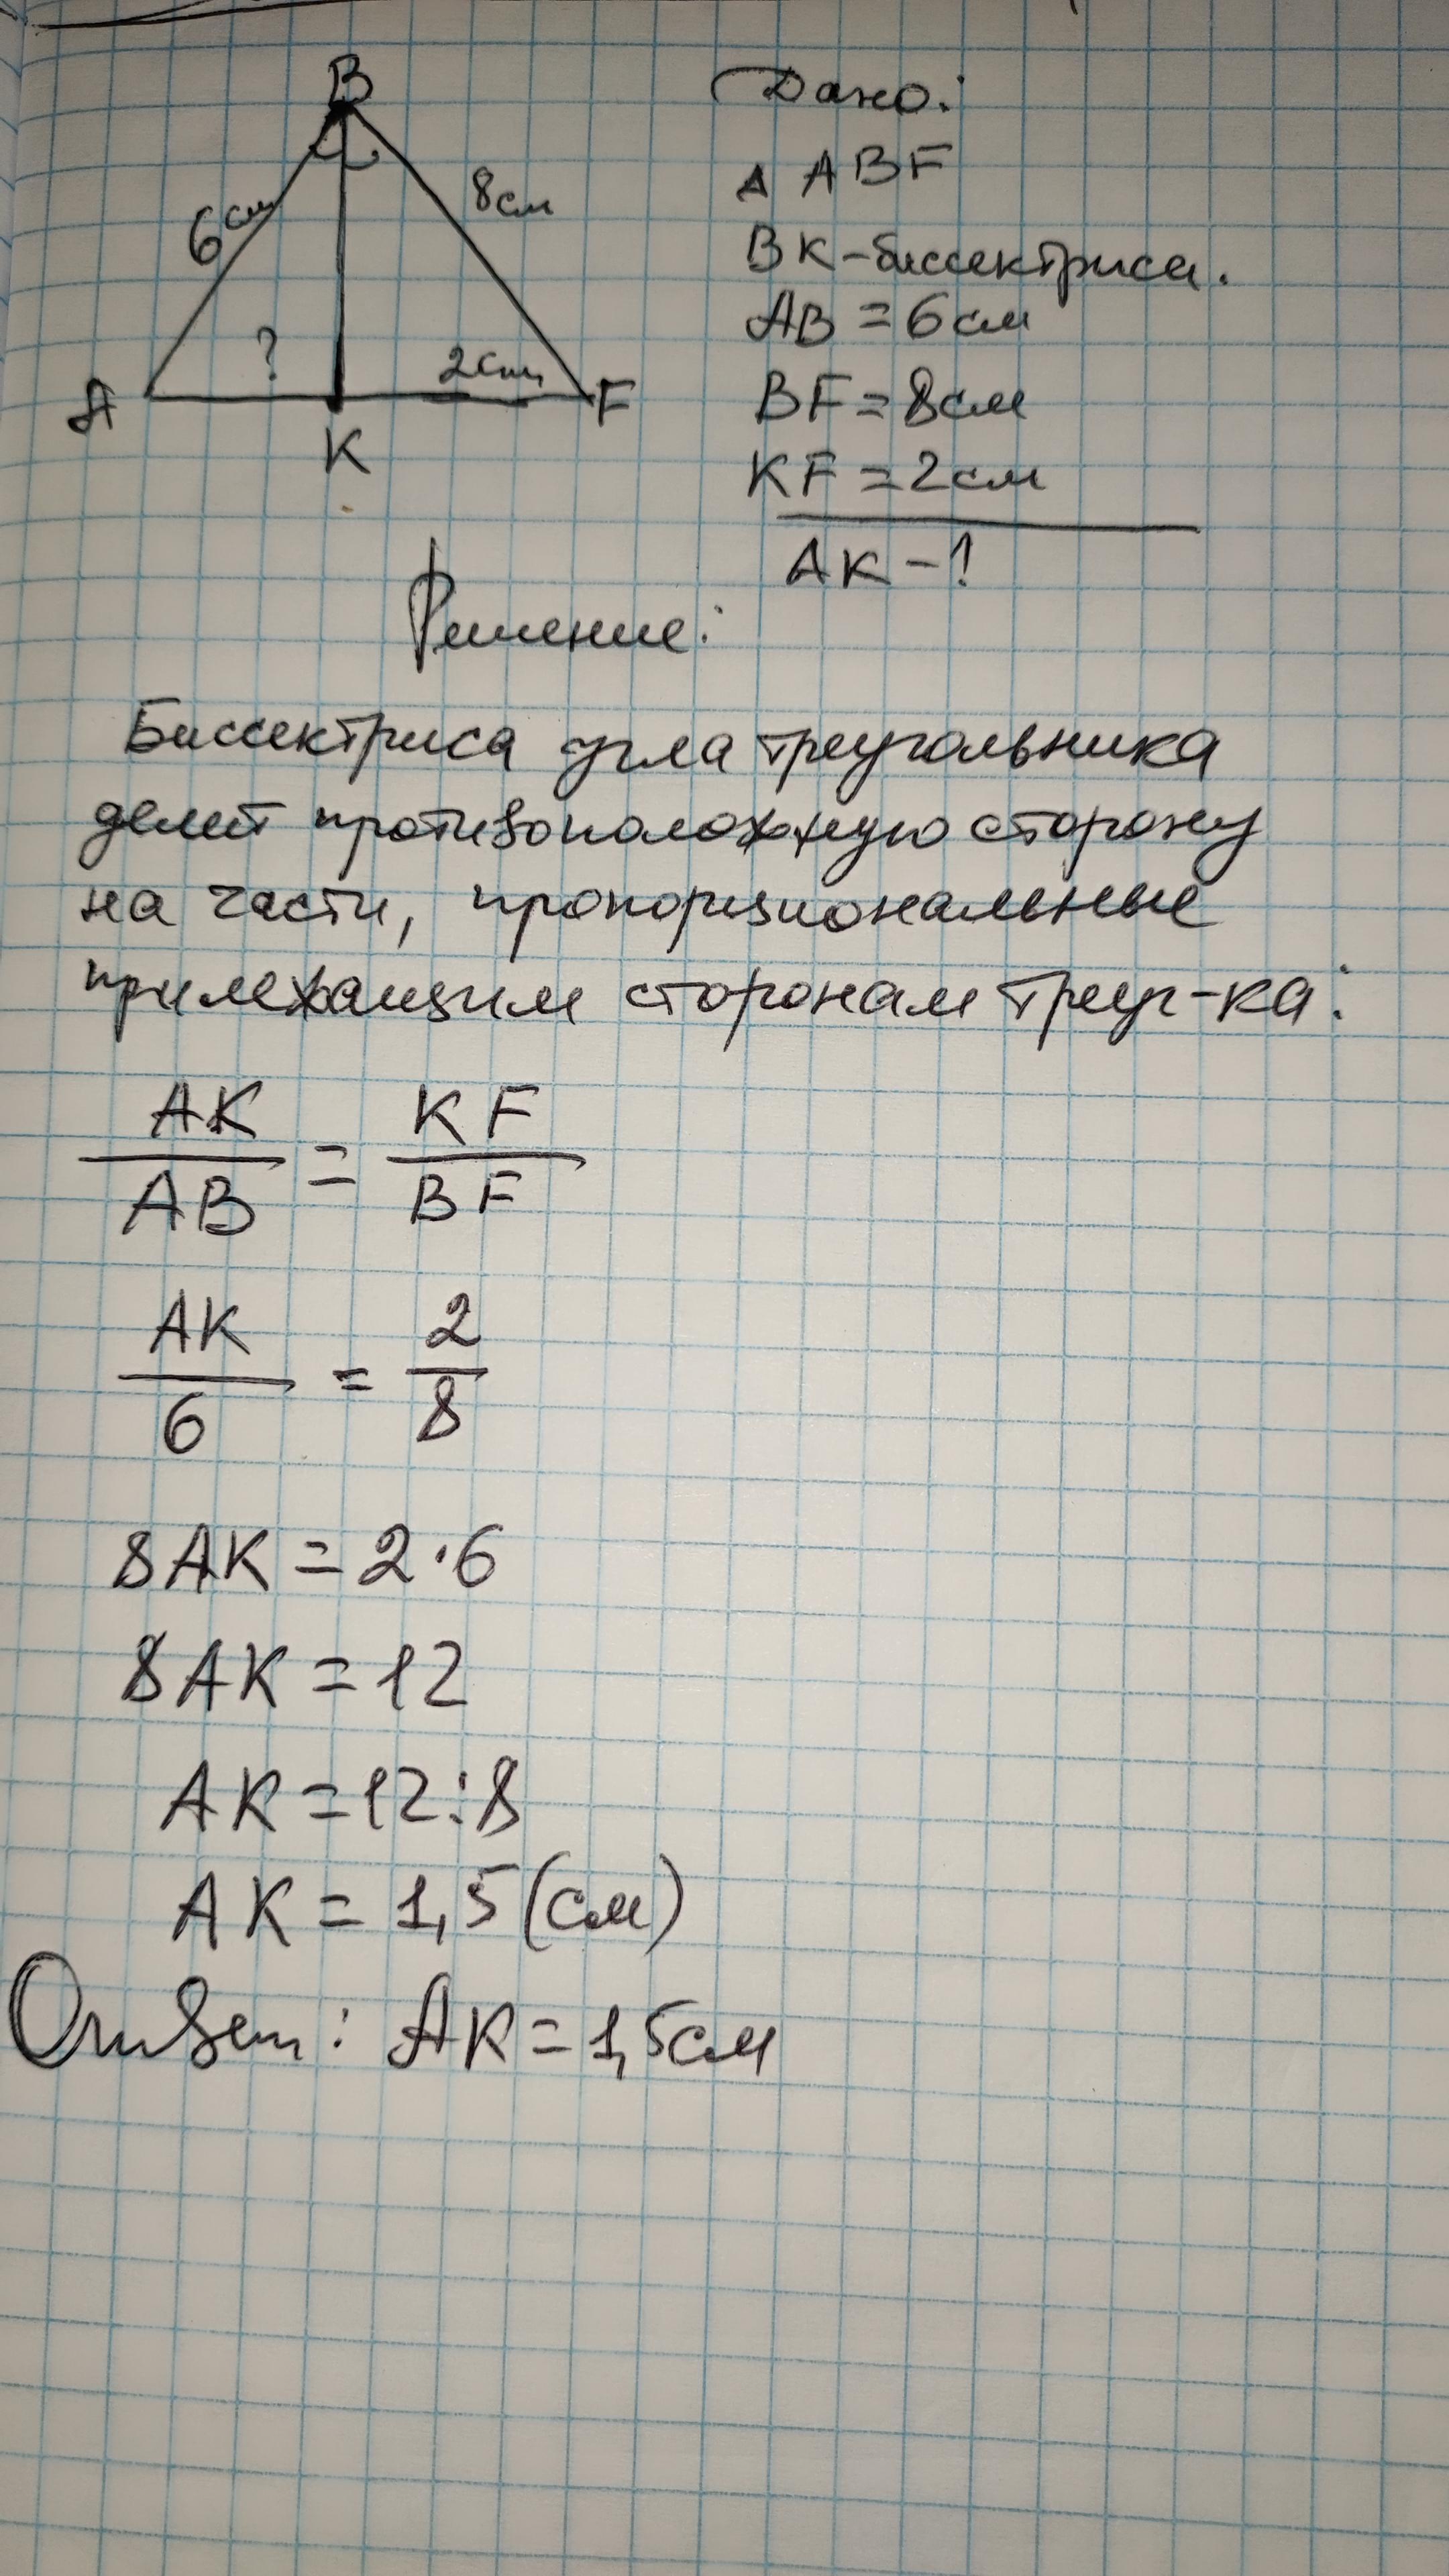 B
6см
8см
?
2см
A
F
K
Дано:
Δ ABF
BK-биссектриса.
AB = 6см
BF = 8см
KF = 2см
AK - ?
Решение:
Биссектриса угла треугольника
делит противоположную сторону
на части, пропорциональные
прилежащим сторонам треуг-ка:
AK/AB = KF/BF
AK/6 = 2/8
8AK = 2·6
8AK = 12
AK = 12:8
AK = 1,5 (см)
Ответ: AK = 1,5см